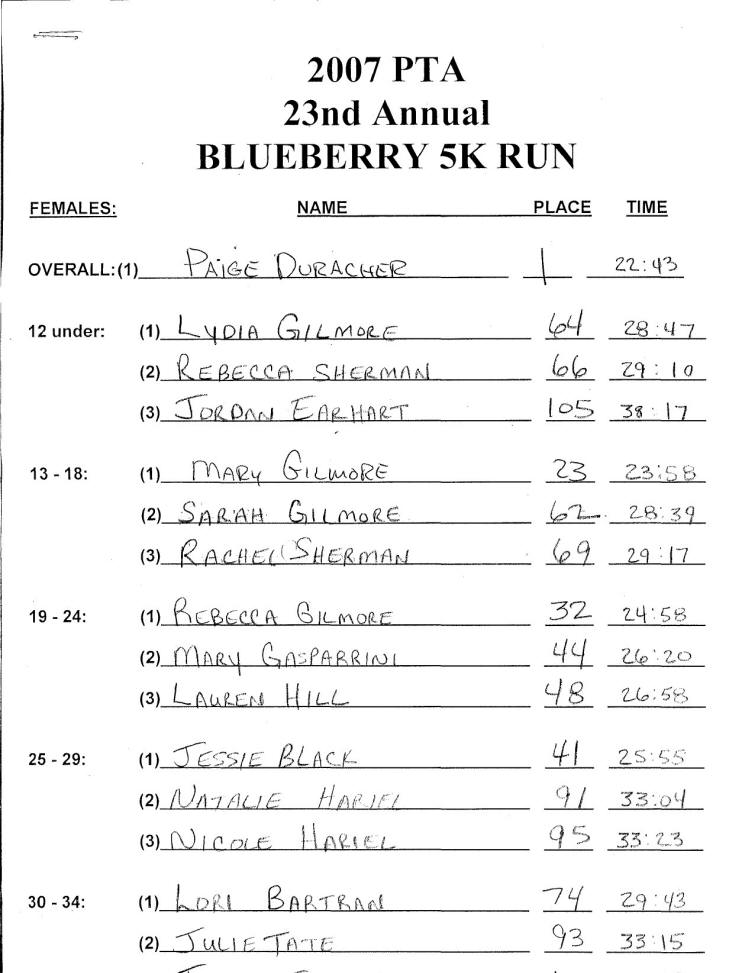 2007 PTA
23nd Annual
BLUEBERRY 5K RUN
FEMALES: NAME PLACE TIME
OVERALL:(1) PAIGE DURACHER 1 22:43
12 under: (1) LYDIA GILMORE 64 28:47
(2) REBECCA SHERMAN 66 29:10
(3) JORDAN EARHART 105 38:17
13 - 18: (1) MARY GILMORE 23 23:58
(2) SARAH GILMORE 62 28:39
(3) RACHEL SHERMAN 69 29:17
19 - 24: (1) REBECCA GILMORE 32 24:58
(2) MARY GASPARRINI 44 26:20
(3) LAUREN HILL 48 26:58
25 - 29: (1) JESSIE BLACK 41 25:55
(2) NATALIE HARIEL 91 33:04
(3) NICOLE HARIEL 95 33:23
30 - 34: (1) LORI BARTRAN 74 29:43
(2) JULIE TATE 93 33:15